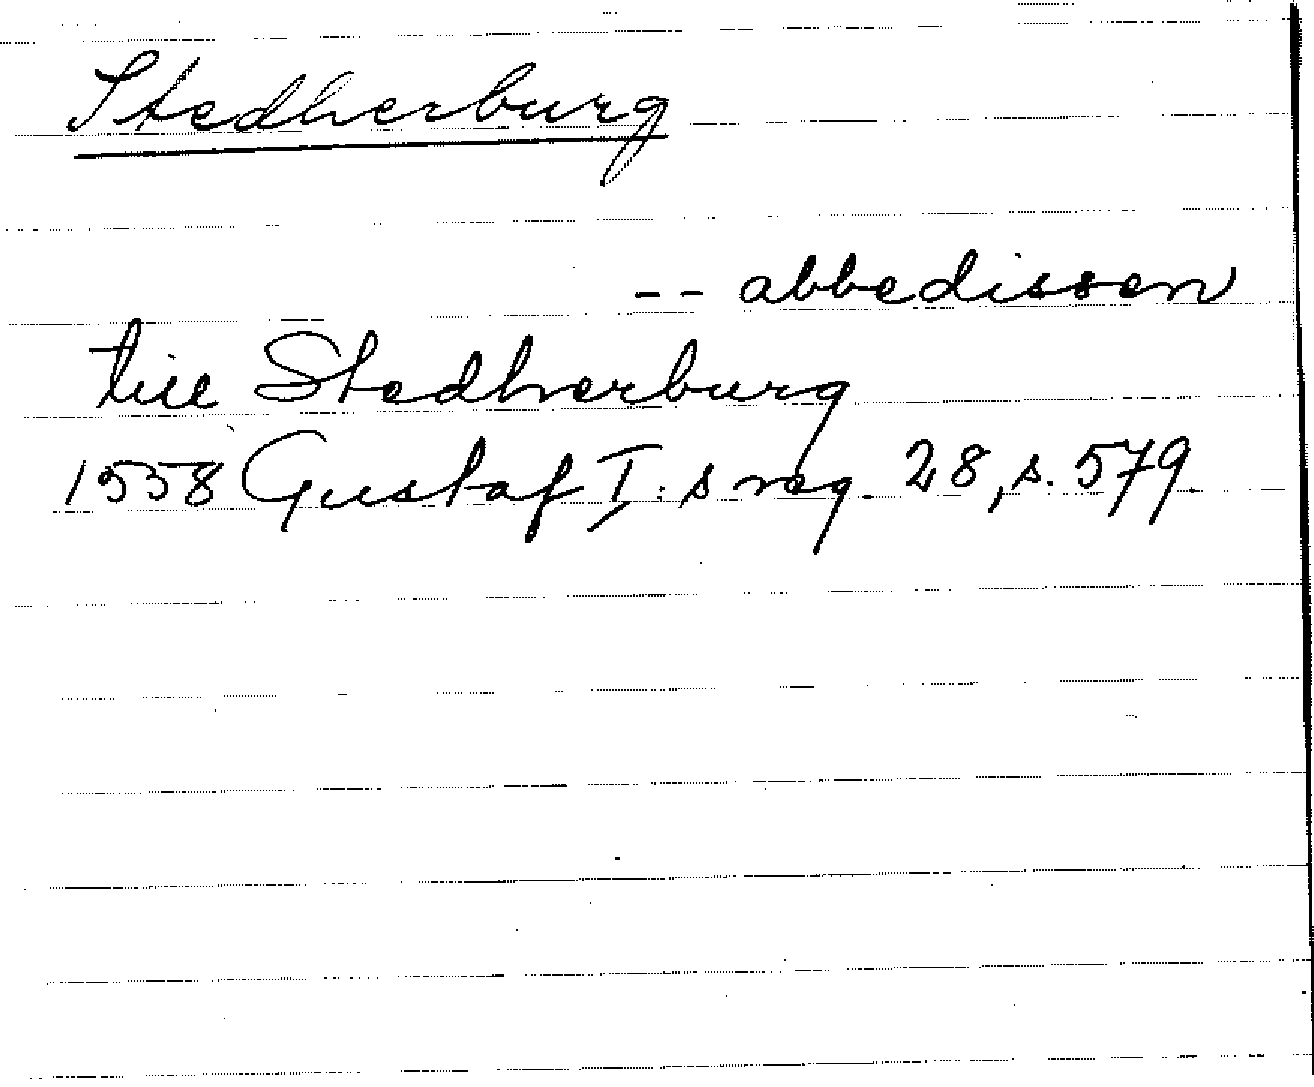 Stedherburg
-- abbedissen
till Stedherburg
1558 Gustaf I:s reg. 28, s. 579.